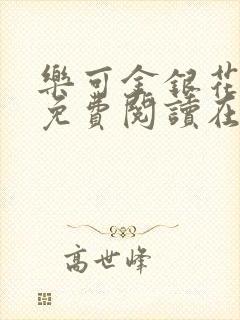 樂可金銀花
免費閱讀在
高世峰